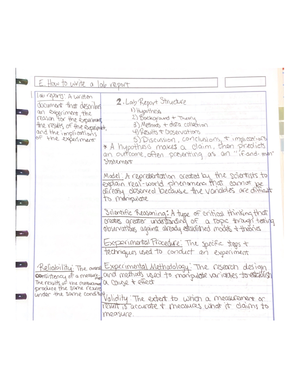 E. How to write a lab report
Lab report: A written
document that describes
an experiment, the
reason for the experiment,
the results of the experiment,
and the implications
of the experiment
Reliability: The
consistency of a measure.
The results of the
produce the same results
under the same conditions
2. Lab Report Structure
1) Hypothesis
2) Background + Theory
3) Methods + data collection
4) Results + Observations
5) Discussion, conclusions, + implications
* A hypothesis makes a claim, then predicts
an outcome, often presenting as an "if and then"
statement
Model: A representation created by the scientists to
explain real-world phenomena that cannot be
directly observed because the variables are difficult
to manipulate
Scientific Reasoning: A type of critical thinking that
creates greater understanding of a topic through testing
observations against already established models + theories
Experimental Procedure: The specific steps +
techniques used to conduct an experiment
Experimental Methodology: The research design
and methods used to manipulate variables to establish
a cause + effect
Validity: The extent to which a measurement or
result is accurate + measures what it claims to
measure.